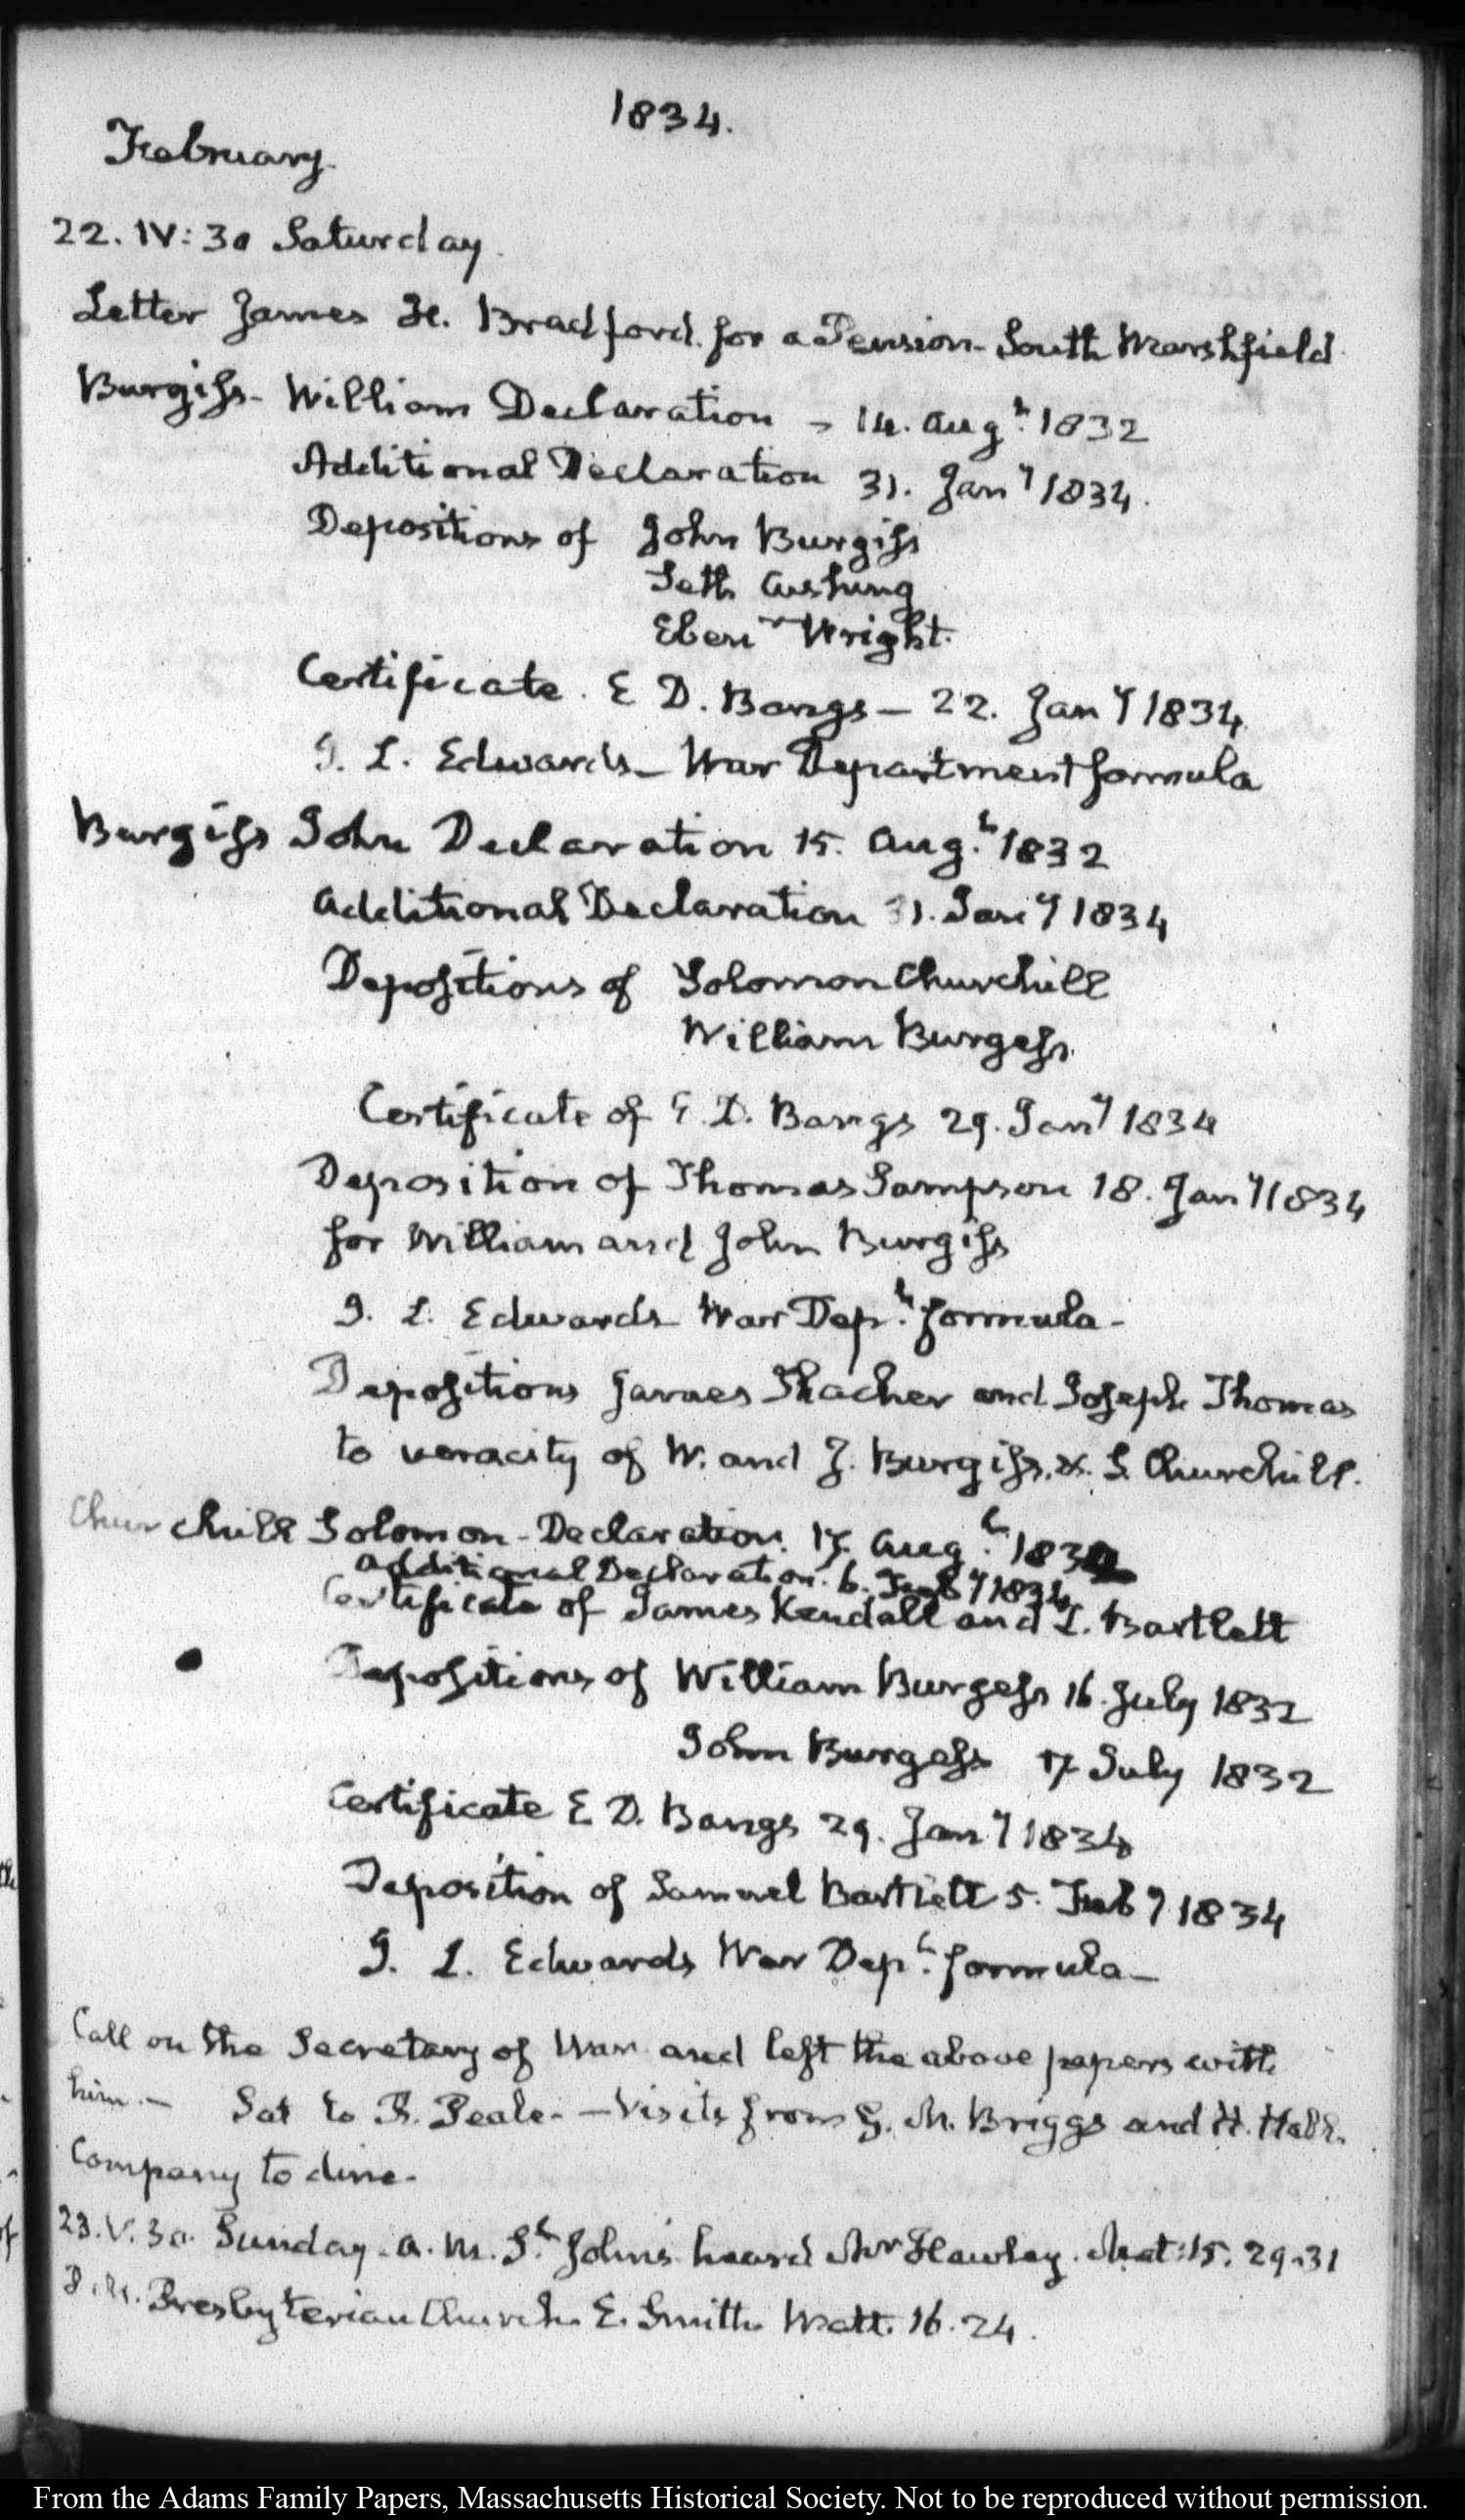 1834.
February.
22. IV:30 Saturday.
Letter James H. Bradford. for a Pension - South Marshfield.
Burgiss - William Declaration - 14. Augt. 1832
Additional Declaration 31. Jany 1834.
Depositions of John Burgiss
Seth Cushing
Ebenr Wright.
Certificate. E D. Bangs - 22. Jany 1834
J. L. Edwards - War Department formula
Burgiss John Declaration 15. Augt. 1832
Additional Declaration 31. Jany 1834
Depositions of Solomon Churchill
William Burgess.
Certificate of E. D. Bangs 29. Jany 1834
Deposition of Thomas Sampson 18. Jany 1834
for William and John Burgiss
J. L. Edwards War Dept. formula -
Depositions James Thacher and Joseph Thomas
to veracity of W. and J. Burgiss. & S. Churchill.
Churchill Solomon - Declaration. 17. Augt. 1832
Additional Declaration. 6. Feby 1834
Certificate of James Kendall and I. Bartlett
Depositions of William Burgess 16. July 1832
John Burgess 17 July 1832
Certificate E D. Bangs 29. Jany 1834
Deposition of Samuel Bartlett 5. Feby 1834
J. L. Edwards War Dept. formula -
Call on the Secretary of War and left the above papers with
him. - Sat to R. Peale. - Visits from G. N. Briggs and H. Hall.
Company to dine -
23. V.30. Sunday. A. M. St. Johns heard Mr Hawley. Mat: 15. 29-31
P. M. Presbyterian Church. E. Smith Matt. 16. 24.
From the Adams Family Papers, Massachusetts Historical Society. Not to be reproduced without permission.